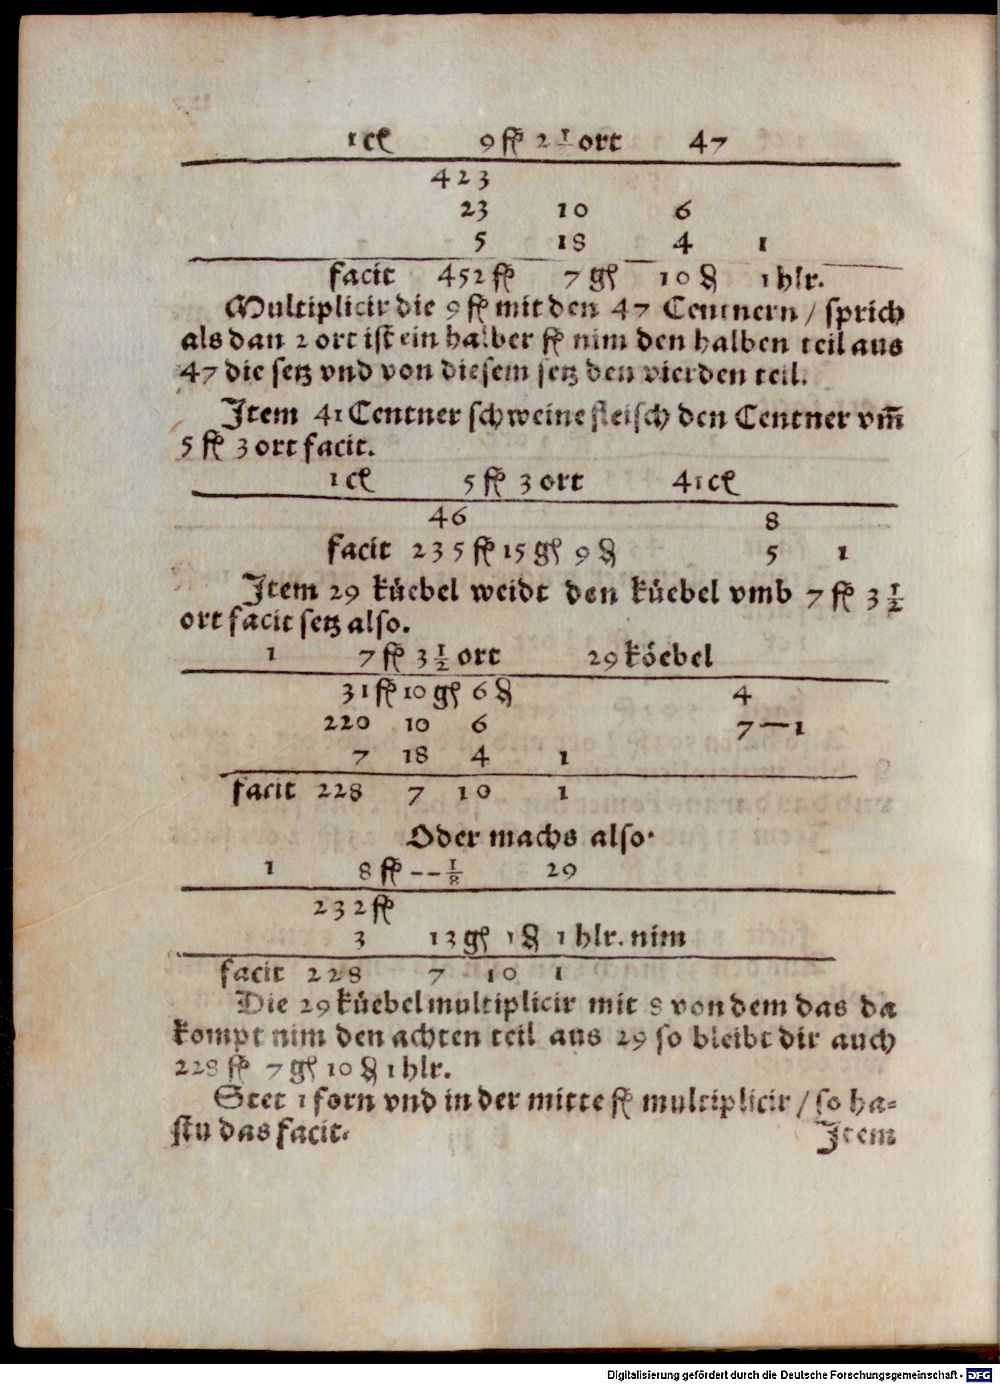 1 cł 9 fl 2 1/2 ort 47
423
23 10 6
5 18 4 1
facit 452 fl 7 gl 10 ₰ 1 hlr.
Multiplicir die 9 fl mit den 47 Centnern / sprich
als dan 2 ort ist ein halber fl nim den halben teil aus
47 die setz vnd von diesem setz den vierden teil.
Item 41 Centner schweine fleisch den Centner vm̄
5 fl 3 ort facit.
1 cł 5 fl 3 ort 41 cł
46 8
facit 235 fl 15 gl 9 ₰ 5 1
Item 29 kůebel weidt den kůebel vmb 7 fl 3 1/2
ort facit setz also.
1 7 fl 3 1/2 ort 29 kóebel
31 fl 10 gl 6 ₰ 4
220 10 6 7—1
7 18 4 1
facit 228 7 10 1
Oder machs also.
1 8 fl -- 1/8 29
232 fl
3 13 gl 1 ₰ 1 hlr. nim
facit 228 7 10 1
Die 29 kůebel multiplicir mit 8 von dem das da
kompt nim den achten teil aus 29 so bleibt dir auch
228 fl 7 gl 10 ₰ 1 hlr.
Stet 1 forn vnd in der mitte fl multiplicir / so ha=
stu das facit. Item
Digitalisierung gefördert durch die Deutsche Forschungsgemeinschaft - DFG